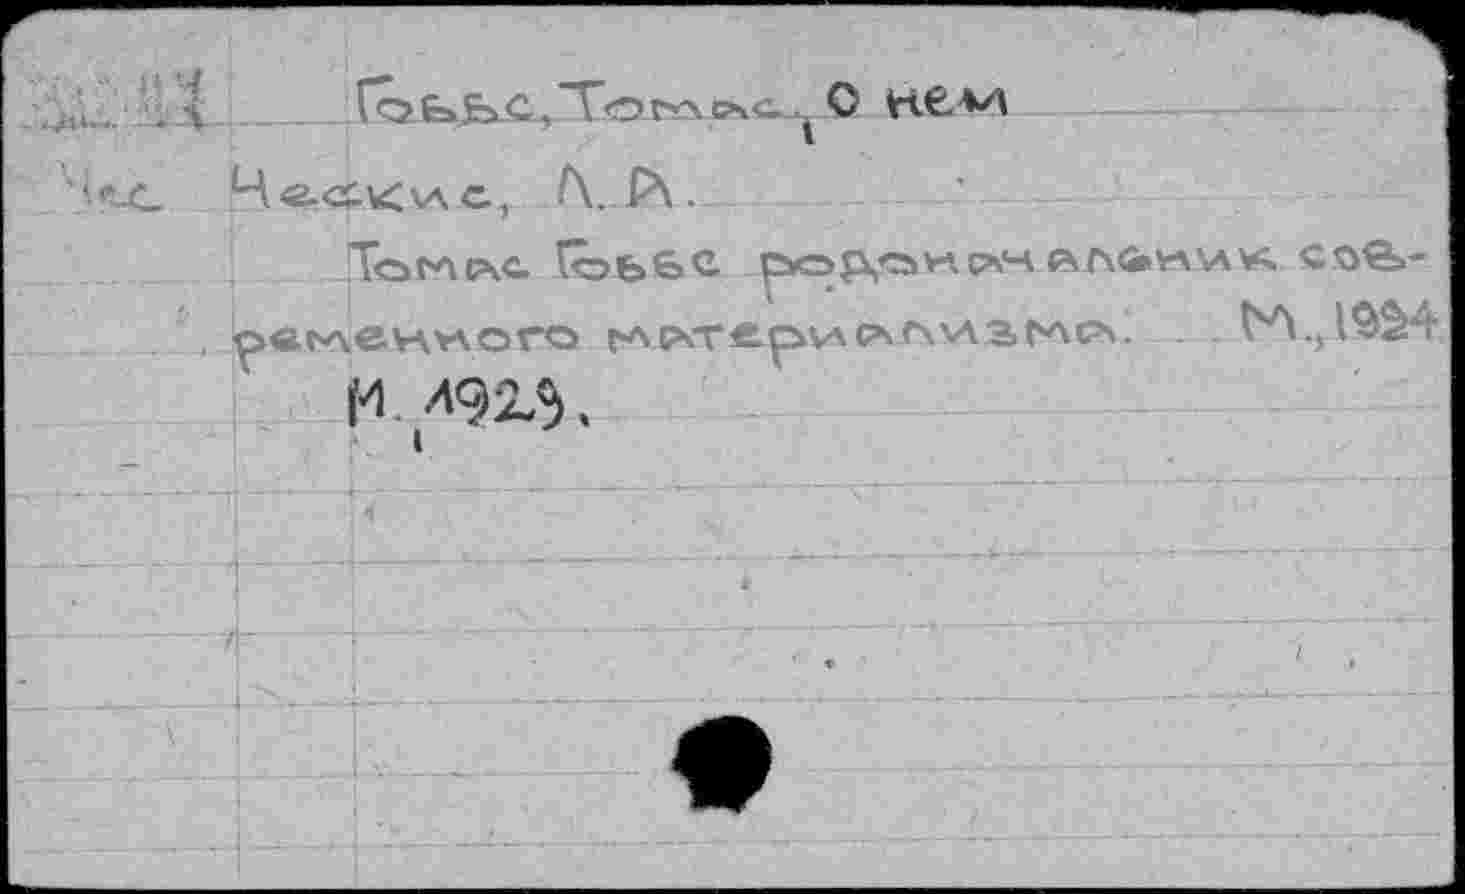 Гоббс, Томас. О нем
Чес Ческис, Л. А.
Томас Гоббс родоначальник сов-
ременного материализма. М., 1924
М. 1925.